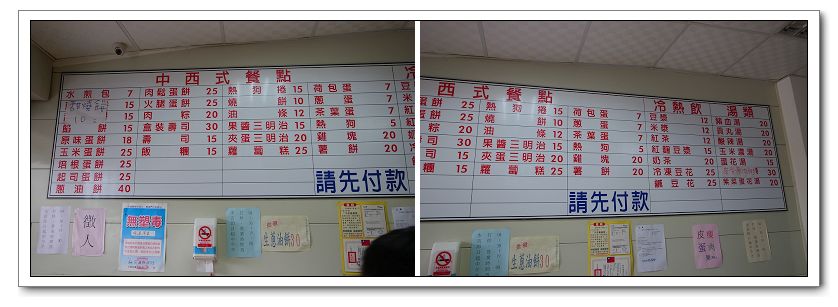 中西式餐點
冷
水煎包 7
甜燒餅
10
餡餅 15
原味蛋餅 18
玉米蛋餅 25
培根蛋餅 25
起司蛋餅 25
蔥油餅 40
肉鬆蛋餅 25
火腿蛋餅 25
肉粽 20
盒裝壽司 30
壽司 15
飯糰 15
熱狗捲 15
燒餅 10
油條 12
果醬三明治 15
夾蛋三明治 20
蘿蔔糕 25
荷包蛋 7
蔥蛋 7
茶葉蛋 7
熱狗 5
雞塊 20
薯餅 20
豆
米
紅
請先付款
徵人
無塑毒
生蔥油餅30
西式餐點
冷熱飲
湯類
蛋餅 25
蛋餅 25
粽 20
司 30
司 15
糰 15
熱狗捲 15
燒餅 10
油條 12
果醬三明治 15
夾蛋三明治 20
蘿蔔糕 25
荷包蛋 7
蔥蛋 7
茶葉蛋 7
熱狗 5
雞塊 20
薯餅 20
豆漿 12
米漿 12
紅茶 12
豆漿 15
奶茶 20
冷凍豆花 25
鹹豆花 25
豬血湯 20
貢丸湯 20
酸辣湯 20
玉米濃湯 20
蛋花湯 15
紫菜蛋花湯 20
請先付款
生蔥油餅30
皮蛋
瘦肉